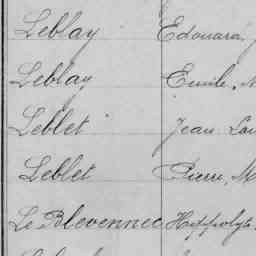 Leblay Edouard,
Leblay Emile,
Leblet Jean
Leblet Pierre, M
Le Blevennec Hippolyte